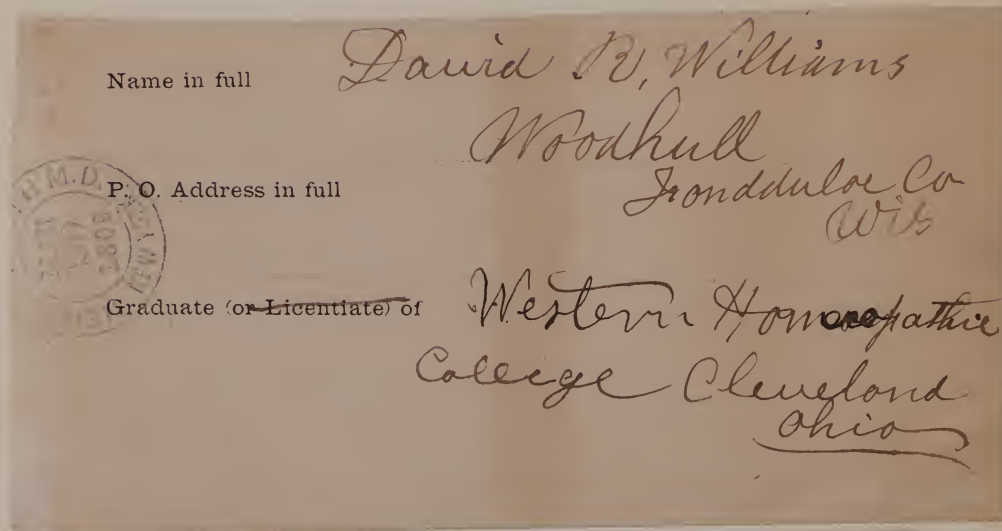 Name in full David R, Williams
Woodhull
P. O. Address in full
Fonddulac Co
Wis
Graduate (or Licentiate) of Western Homoeopathic
College Cleveland
Ohio
M.D.